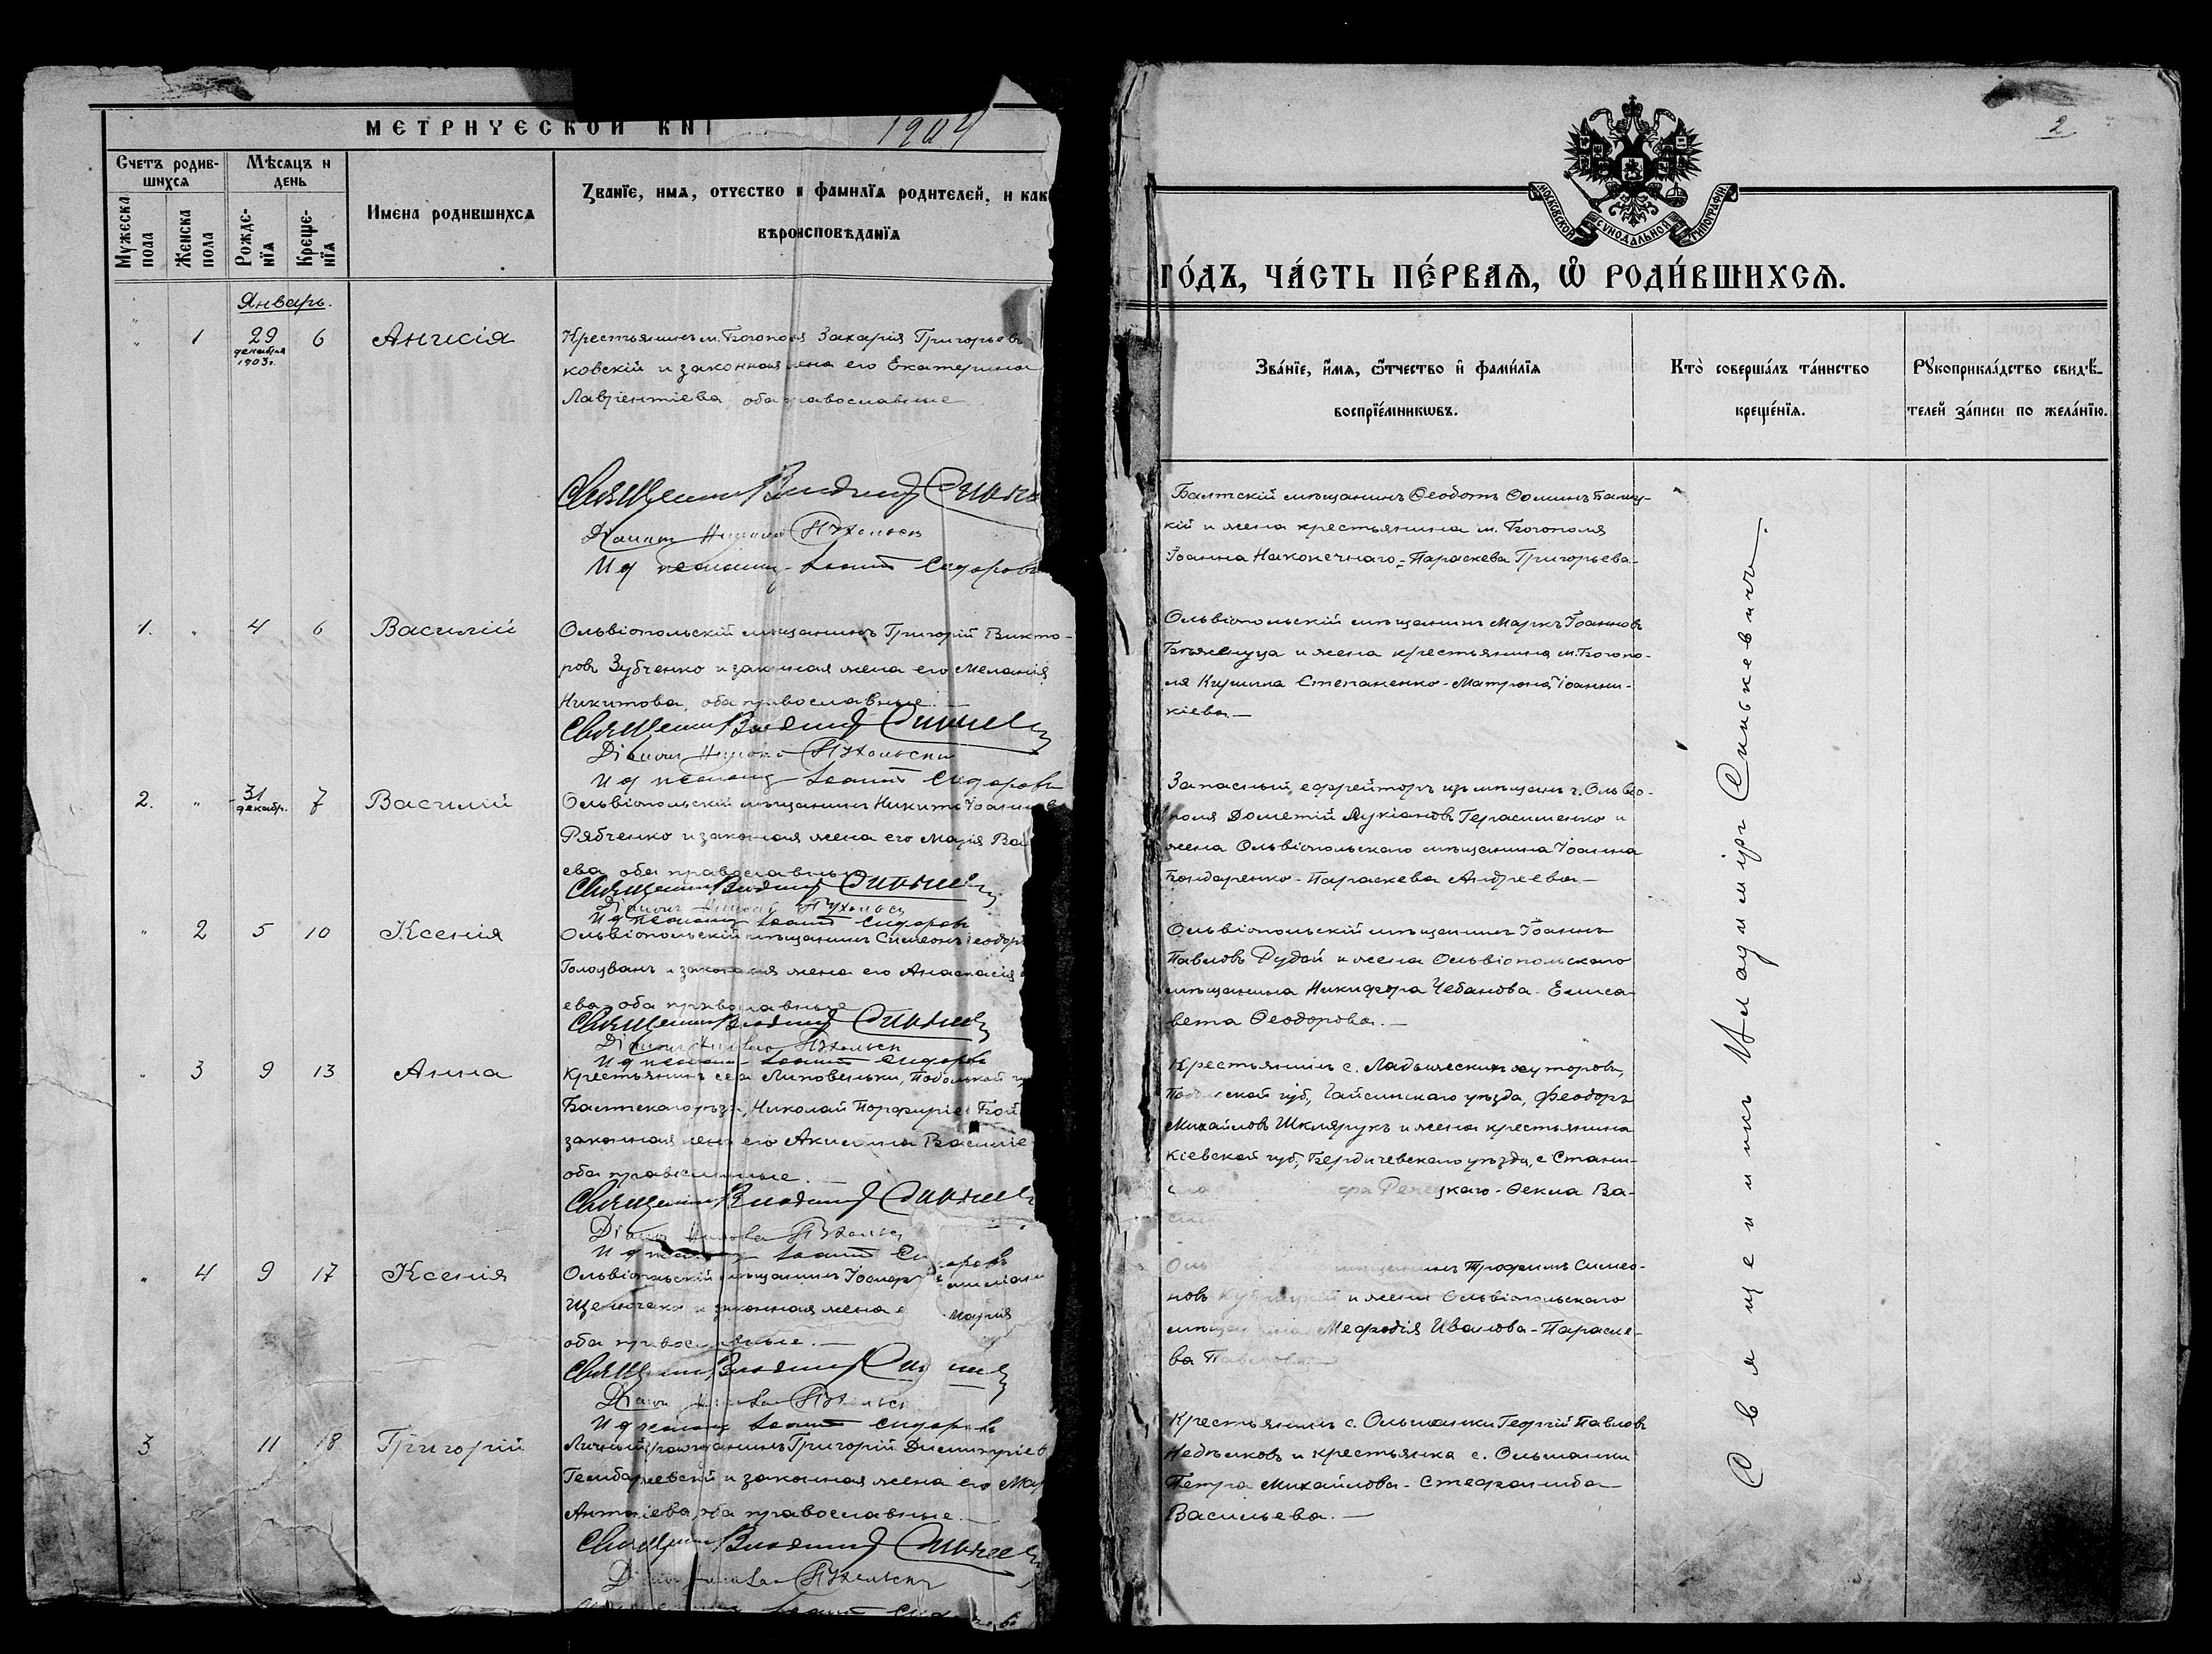 МЕТРИЧЕСКОЙ КНИ
1904
Счетъ родив-
шихся
Мѣсяцъ и
день
Мужеска
пола
Женска
пола
Рожде-
нїя
Креще-
нїя
Имена родившихся
Званїе, имя, отчество и фамилїя родителей, и как
вѣроисповѣданїя
Январь.
1
29
декабря
1903 г.
6
Анисія
Крестьянинъ м. Богополя Захарія Григорьев
ковскій и законная жена его Екатерина
Лаврентіева, оба православные
Священникъ Владимір Синькев
Діаконъ
И д псаломщ. Іоаннъ Сидоровъ
1.
4
6
Василій
Ольвіопольскій мѣщанинъ Григорій Викто-
ровъ Зубченко и законная жена его Меланія
Никитова, оба православные. —
Священникъ Владимір Синькев
Діаконъ
И д псаломщ. Іоаннъ Сидоровъ
2.
"
31
декабр.
7
Василій
Ольвіопольскій мѣщанинъ Никита Іоаннов
Рябченко и законная жена его Марія Ва
ева, оба православные
Священникъ Владимір Синькев
Діаконъ
И д псаломщ Іоаннъ Сидоровъ
"
2
5
10
Ксенія
Ольвіопольскій мѣщанинъ Симеонъ Ѳеодор
Голован и законная жена его Анастасія
ева, оба православные
Священникъ Владимір Синькев
Діаконъ
И д псаломщ Іоаннъ Сидоровъ
"
3
9
13
Анна
Крестьянинъ села Липовеньки, Подольской гу
Балтскаго уѣзда, Николай Порфиріев Бой
законная жена его Акилина Василіе
оба православные. —
Священникъ Владимір Синькев
Діаконъ
И д псаломщ Іоаннъ Сидоровъ
"
4
9
17
Ксенія
Ольвіопольскій мѣщанинъ
и законная жена е Марія
оба православные. —
Священникъ Владимір
Діаконъ
И д псаломщ Іоаннъ Сидоровъ
3
11
18
Григорій
Личный гражданинъ Григорій Димитріев
и законная жена его Мар
Антоніева, оба православные. —
Священникъ Владимір Синькев
Діаконъ
Іоаннъ
2
МОСКОВСКОЙ СУНОДАЛЬНОЙ ТИПОГРАФІИ
ГО́ДЪ, ЧА́СТЬ ПЕ́РВАЯ, Ѽ РОДИ́ВШИХСЯ.
Зва́нїе, и́мя, ѻ҆́тчество и҆ фами́лїя
воспрїе́мникѡвъ.
Кто̀ соверша́лъ та́инство
креще́нїя.
Рꙋкоприкла́дство свидѣ́-
телей за́писи по жела́нїю.
Балтскій мѣщанинъ Ѳеодотъ Ѳоминъ
кій и жена крестьянина м. Богополя
Іоанна Наконечнаго - Параскева Григорьева.
Ольвіопольскій мѣщанинъ Маркъ Іоаннов
и жена крестьянина м. Богопо-
ля Кирилла Степаненко - Матрона Іоанни-
кіева. —
Запасный ефрейторъ изъ мѣщанъ г. Ольвіо-
поля Дометій Лукіановъ Герасименко и
жена Ольвіопольскаго мѣщанина Іоанна
Бондаренко - Параскева Андреева —
Ольвіопольскій мѣщанинъ Іоаннъ
Павловъ Рудой и жена Ольвіопольскаго
мѣщанина Никифора Чебанова - Елиса-
вета Ѳеодорова. —
Крестьянинъ с. Ладыжескихъ хуторовъ,
Подольской губ., Гайсинскаго уѣзда, Феодоръ
Михайловъ Шклярукъ и жена крестьянина
Кіевской губ., Бердичевскаго уѣзда, с. Стани-
Речецкаго - Ѳекла Ва-
Оль мѣщанинъ Трофимъ Симео-
новъ и жена Ольвіопольскаго
мѣщанина Меѳодія Иванова - Параске-
ва Павлова. —
Крестьянинъ с. Ольшанки Георгій Павловъ
Недѣлковъ и крестьянка с. Ольшанки
Петра Михайлова - Стефанида
Васильева. —
Священникъ Владиміръ Синькевичъ.